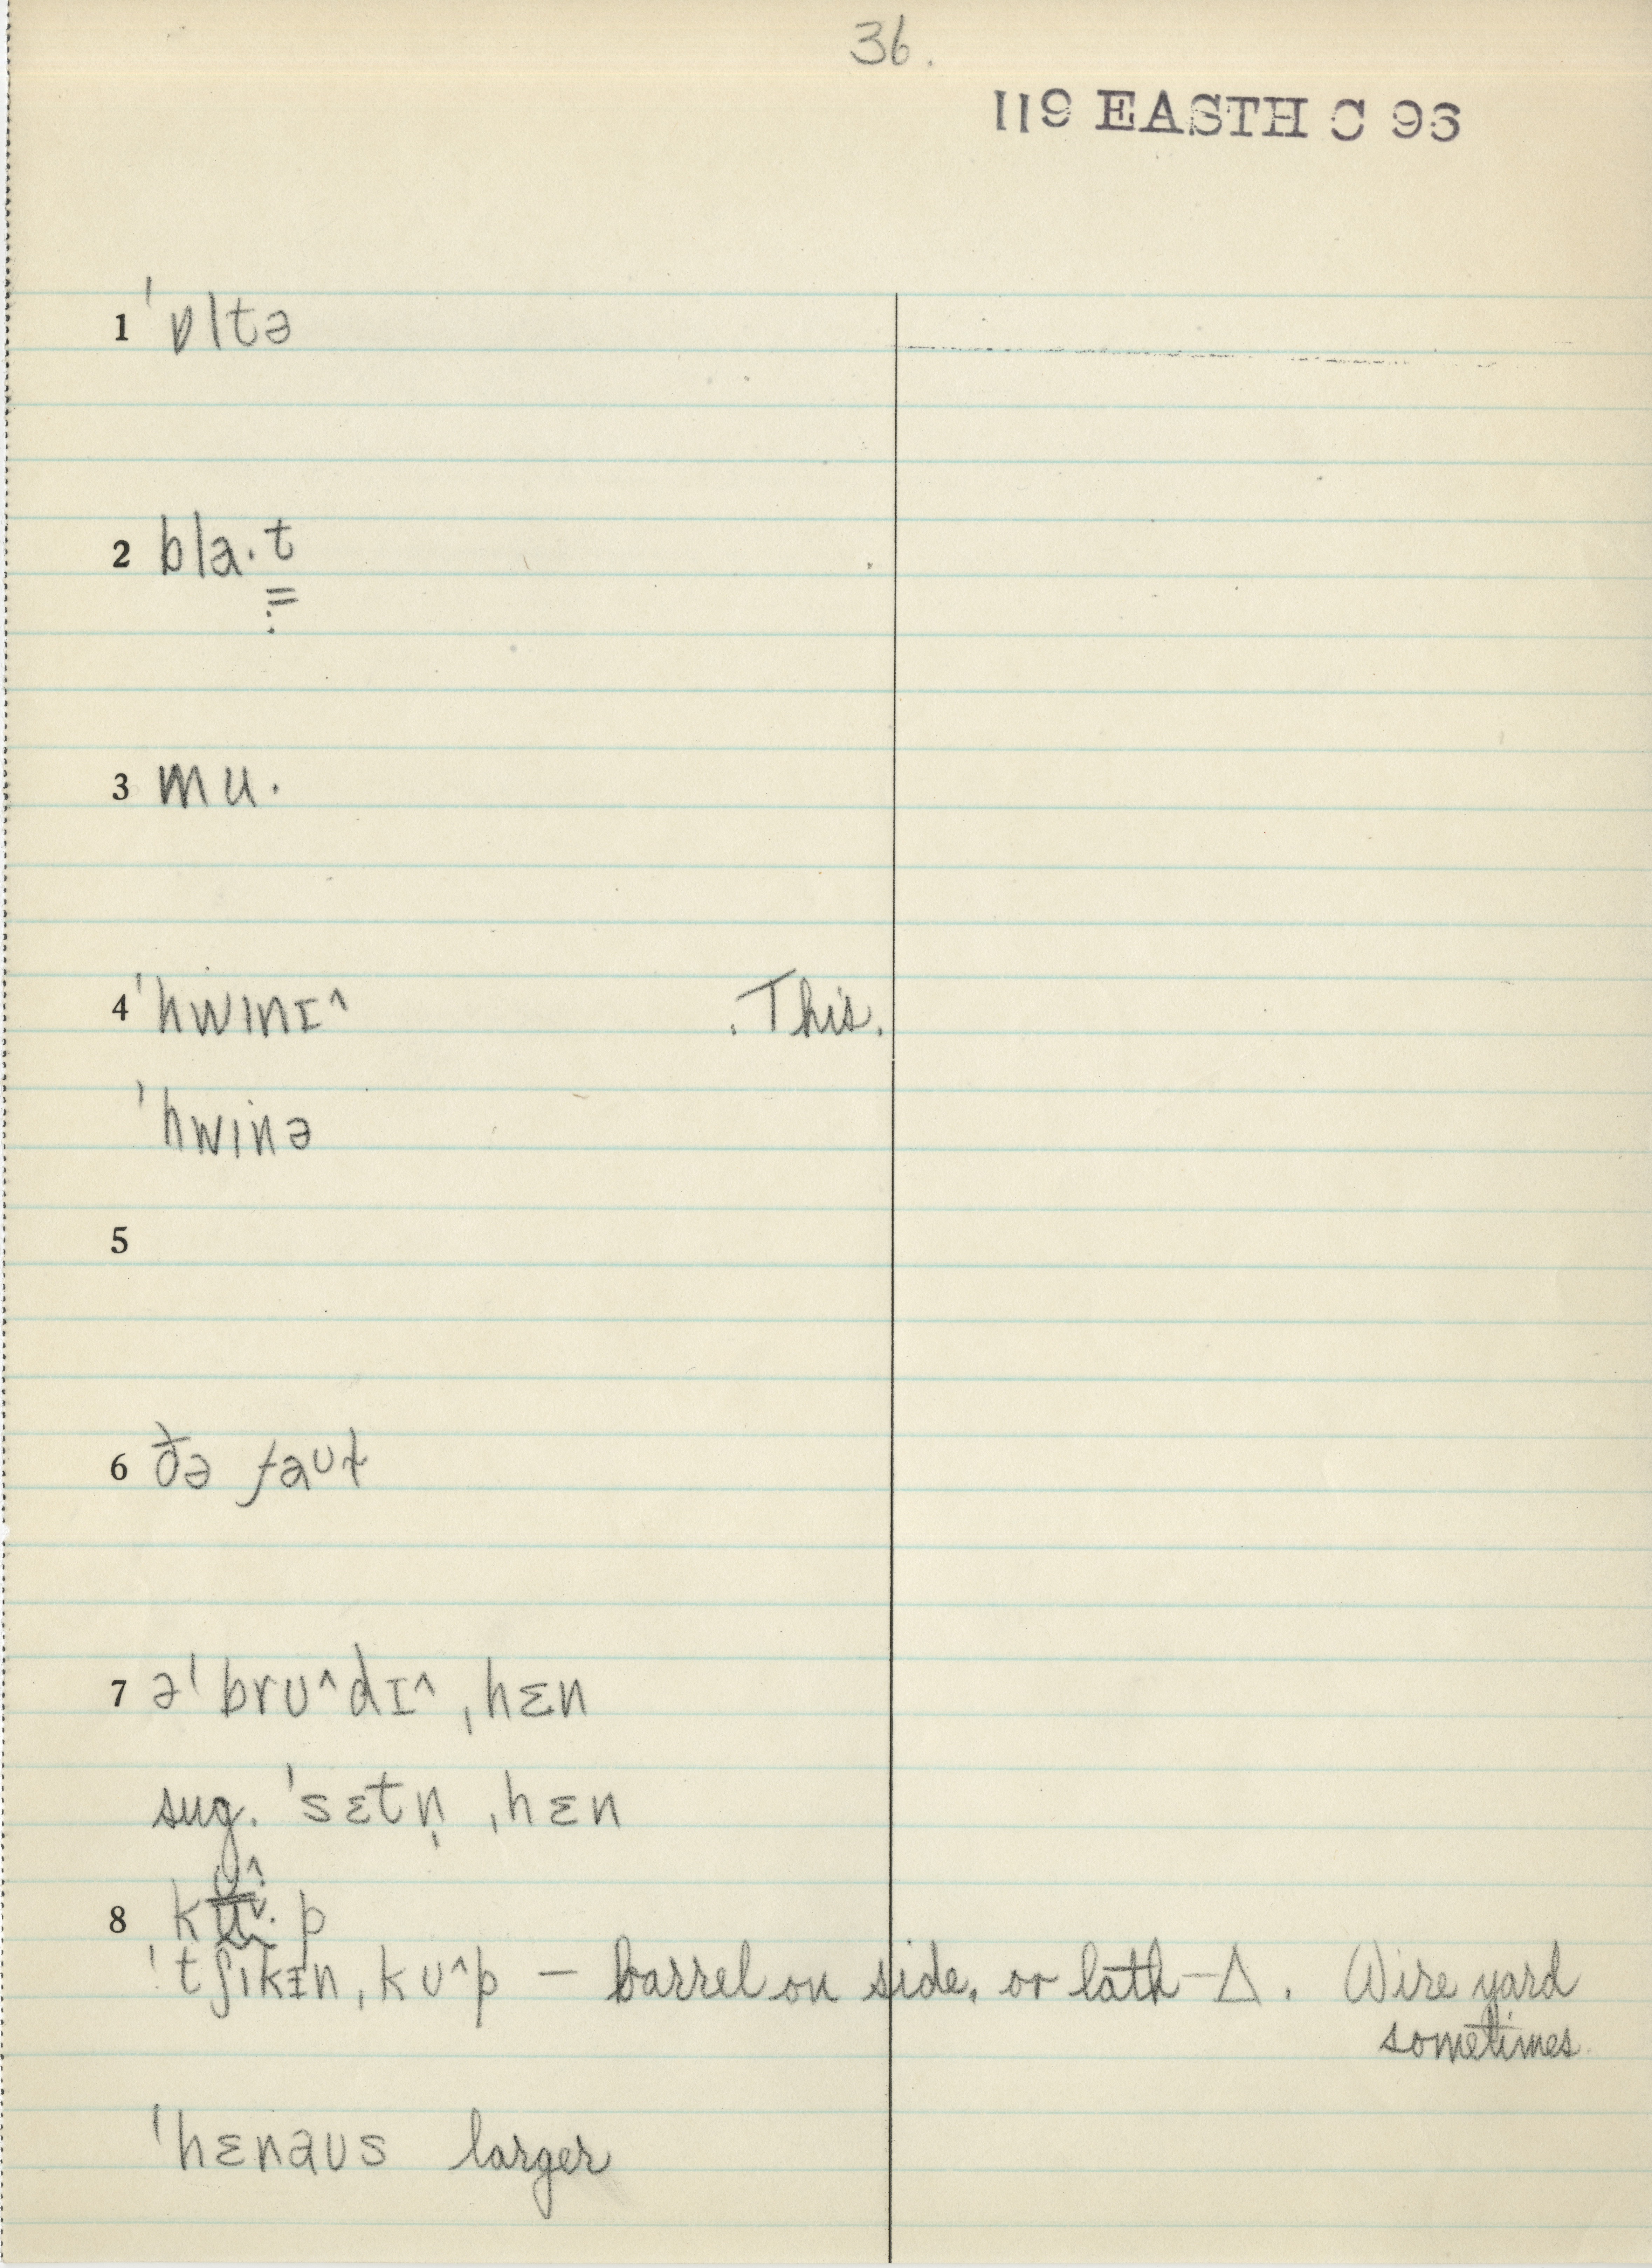 36.
119 EASTH C 96
1 ˈɒltə
2 bla·t
3 mu·
4 ˈhwɪnɪ^ . This.
ˈhwinə
5
6 ðə faʊɫ
7 əˈbrʊ^dɪ^ ˌhɛn
sug. ˈsɛtn̩ ˌhɛn
8 kʊ^p
ˈtʃɪkɪn ˌkʊ^p – barrel on side, or lath – Δ. Wire yard
sometimes.
ˈhɛnaʊs larger